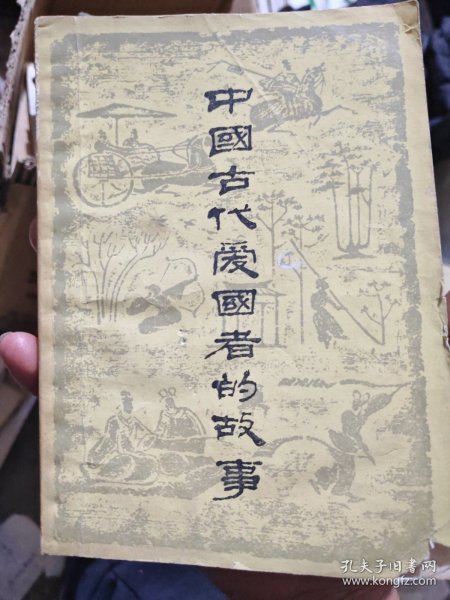 中國古代爱國者的故事
孔夫子旧书网
www.kongfz.com